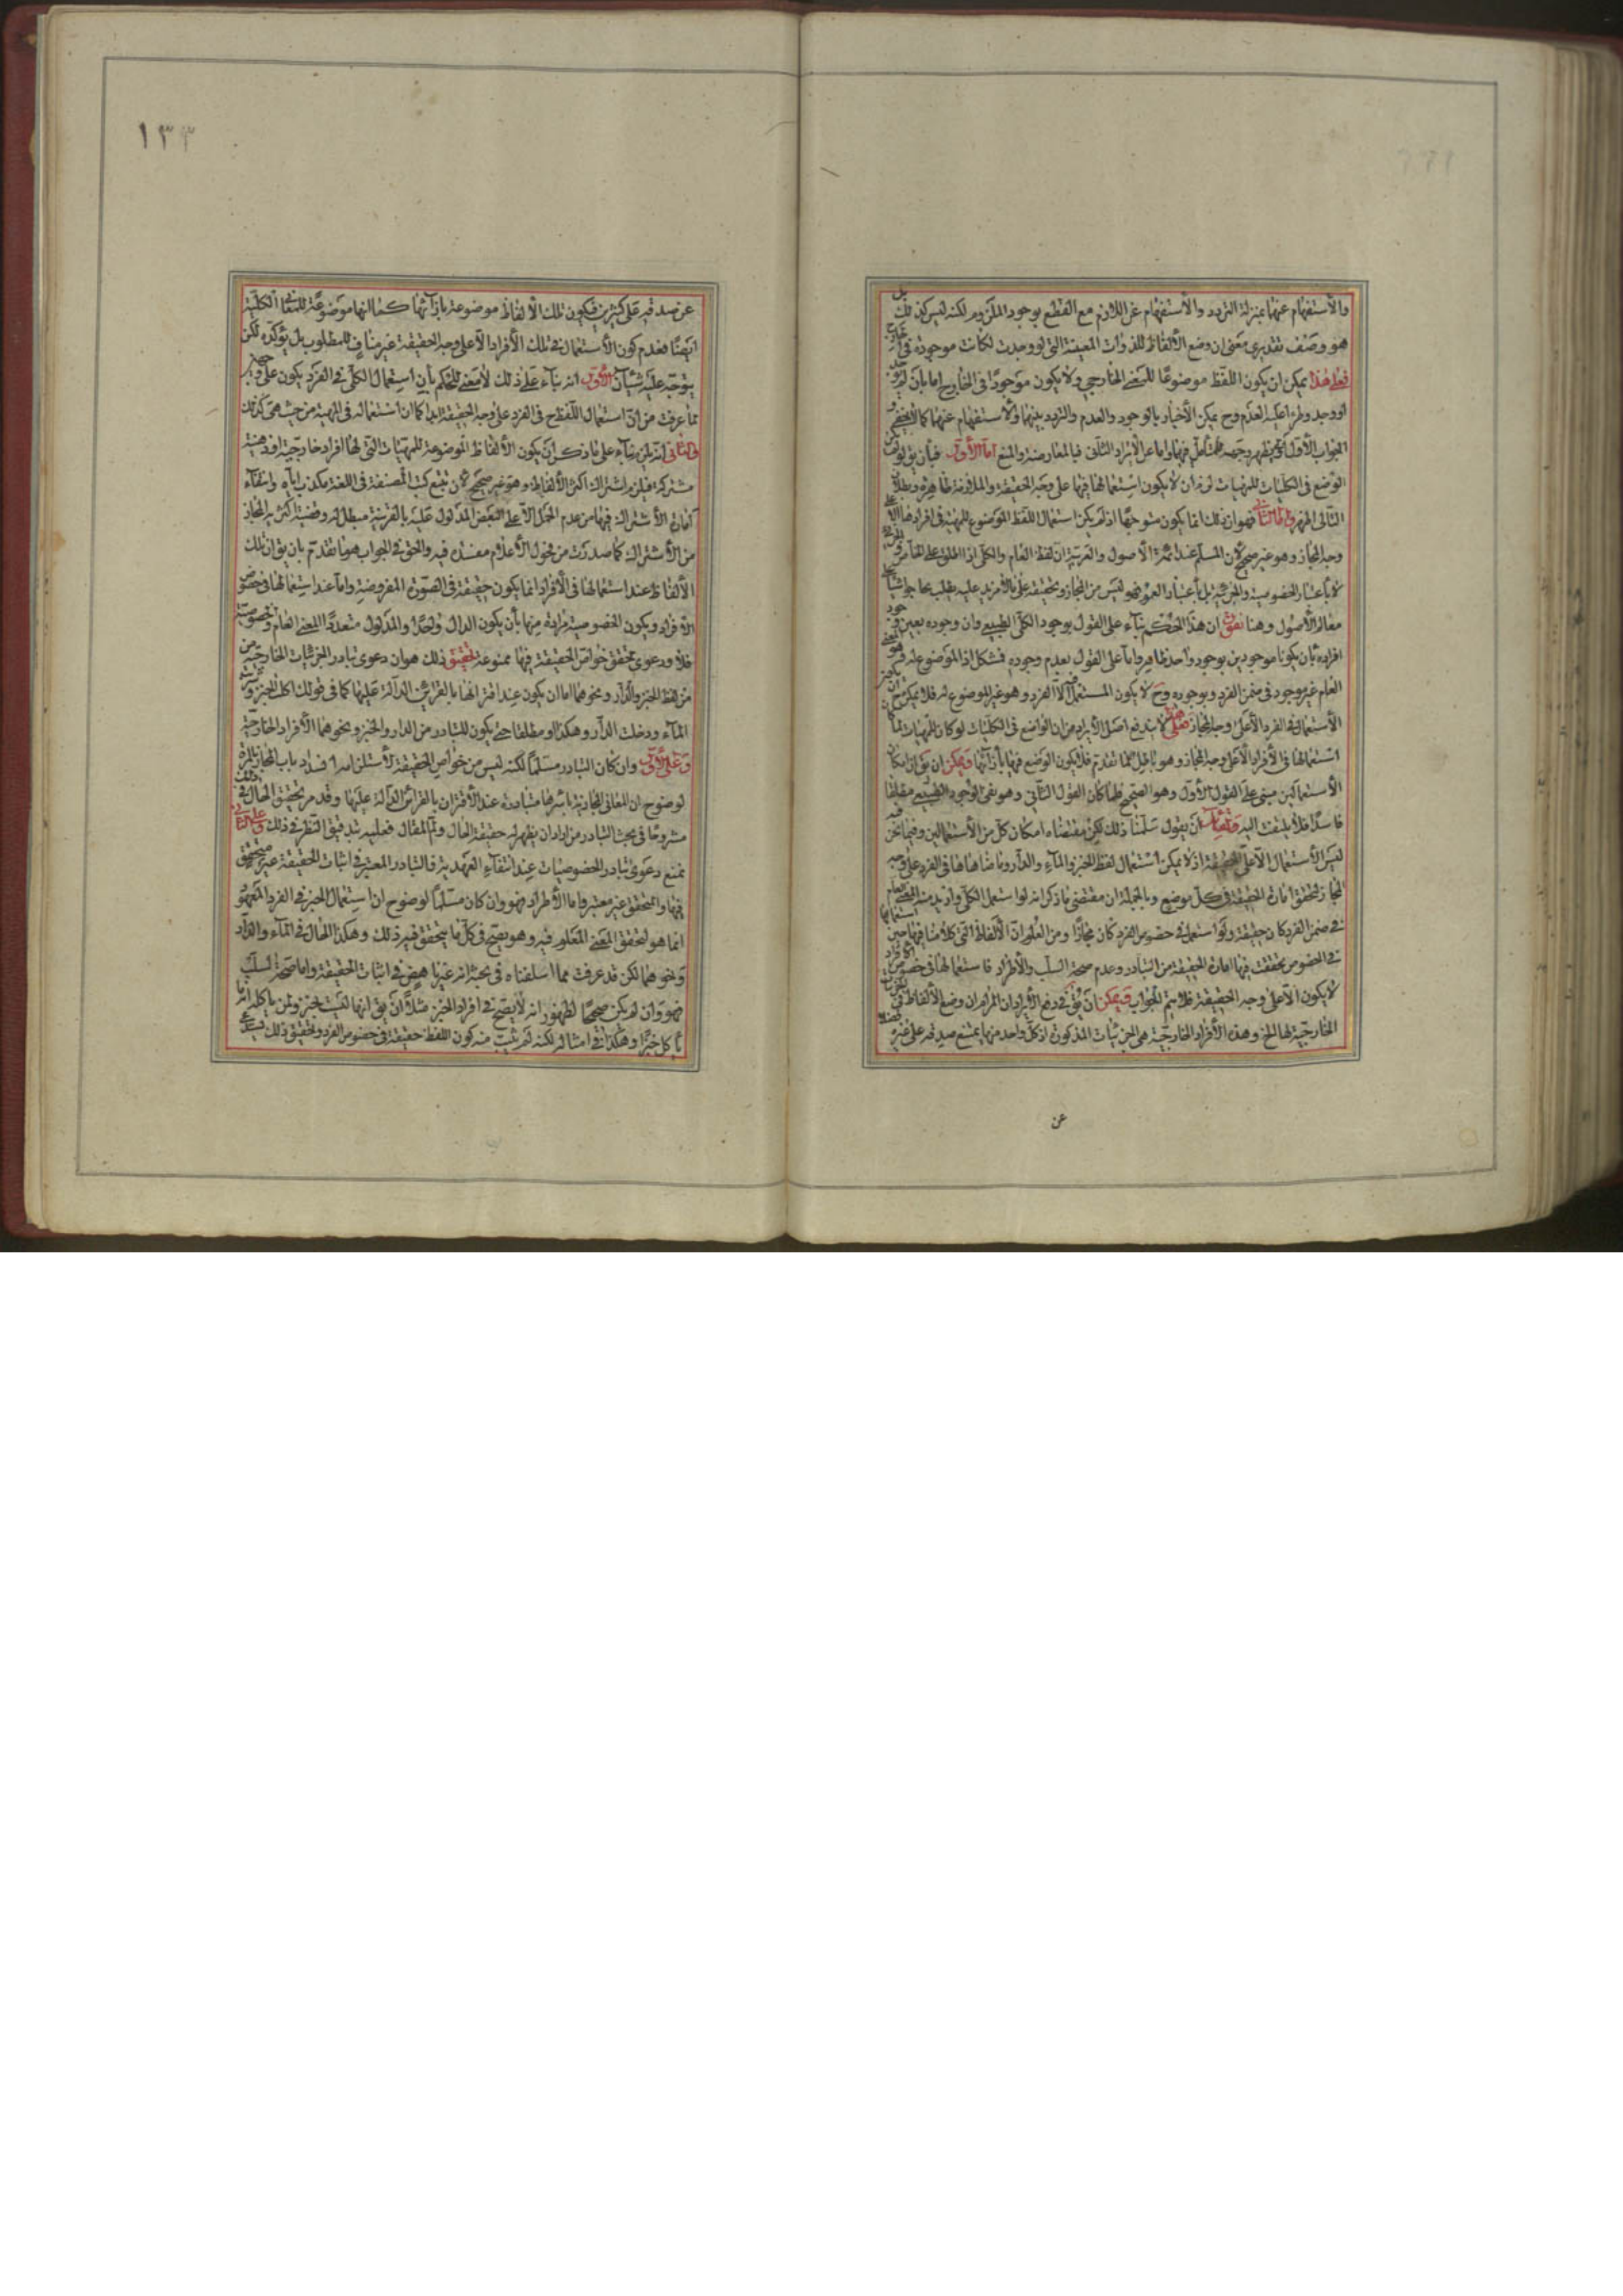 والاستفهام عنها بمنزلة الترديد والاستفهام عن اللازم مع القطع بوجود الملزوم لكنه ليس كذلك بل
هو وصف تقديري بمعنى ان وضع الألفاظ للذوات المعينة التي لو وجدت لكانت موجودة في الخارج
فعلى هذا يمكن ان يكون اللفظ موضوعا للمعنى الخارجي ولا يكون موجودا في الخارج اما بان لم يوجد
او وجد وطرء عليه العدم وح يمكن الأخبار بالوجود والعدم والترديد بينهما والاستفهام عنهما كما لا يخفى
الجواب الأول فيظهر وجهه مما تأمل فيها واما عن الإيراد الثاني فبالمعارضة والمنع اما الأول فبأن يق لو كان
الوضع في الكليات للمهيات لزم ان لا يكون استعمالها فيها على وجه الحقيقة والملازمة ظاهرة وبطلان
التالي اظهر واما الثاني فهو ان ذلك انما يكون متوجها اذا لم يكن استعمال اللفظ الموضوع للمهية في افرادها الا على
وجه المجاز وهو غير صحيح لان المسلم عند ائمة الاصول والعربية ان لفظ العام والكلي اذا اطلق على الخاص
لا باعتبار الخصوصية والجزئية بل باعتبار العموم فهو ليس من المجاز وتحقيقه على ما لا مزيد عليه يطلب
مقام الأصول وهنا نقول ان هذا الحكم بناء على القول بوجود الكلي الطبيعي وان وجوده بعين وجود
افراده بان يكونا موجودين بوجود واحد ظاهر واما على القول بعدم وجوده فمشكل اذ الموضوع له هو المعنى
العام غير موجود في ضمن الفرد وبوجوده وح لا يكون المستعمل فيه الا الفرد وهو غير الموضوع له فلا يمكن
الاستعمال في الفرد الا على وجه المجاز فعلى هذا لا يندفع اصل الايراد من ان الواضع في الكليات لو كان للمهيات لما كان
استعمالها في الأفراد الا على وجه المجاز وهو باطل لما تقدم فلا يكون الوضع فيها بازائها ويمكن ان يق ان امكان
الاستعمالين مبني على القول الأول وهو الصحيح فلما كان القول الثاني وهو نفي الوجود الطبيعي مطلقا
فاسدا فلا يلتفت اليه ولقائل ان يقول سلمنا ذلك لكن مقتضاه امكان كل من الاستعمالين وفيما نحن فيه
ليس الاستعمال الا على الحقيقة اذ لا يمكن استعمال لفظ الخبز والماء والدار وما ضاهاها في الفرد على وجه
المجاز لتحقق امارة الحقيقة في كل موضع وبالجملة ان مقتضى ما ذكر انه لو استعمل الكلي واريد منه المعنى العام
في ضمن الفرد كان حقيقة ولو استعمل في خصوص الفرد كان مجازا ومن المعلوم ان الألفاظ التي كلامنا فيها حين استعمالها
في الخصوص تحققت فيها امارة الحقيقة من التبادر وعدم صحة السلب والأطراد فاستعمالها في خصوص الأفراد
لا يكون الا على وجه الحقيقة فلا يتم الجواب ويمكن ان يق في دفع الأيراد ان المراد ان وضع الألفاظ
الخارجية لها الخ وهذه الأفراد الخارجية هي الجزئيات المذكورة اذ كل واحد منها يمتنع صدقه على غيره
عن
١٣٣
عن صدقه على كثيرين فيكون تلك الألفاظ موضوعة بازائها كما انها موضوعة للمعاني الكلية
ايضا فعدم كون الاستعمال في تلك الأفراد الا على وجه الحقيقة غير مناف للمطلوب بل يؤكده لكن
يتوجه عليه شيئان الأول انه بناء على ذلك لا معنى للحكم بأن استعمال الكلي في الفرد يكون على وجهين
لما عرفت من ان استعمال اللفظ ح في الفرد على وجه الحقيقة ابدا كما ان استعماله في المهية من حيث هي كذلك
والثاني انه يلزم بناء على ما ذكر ان يكون الألفاظ الموضوعة للمهيات التي لها افراد خارجية او ذهنية
مشتركة فيلزم اشتراك اكثر الألفاظ وهو غير صحيح لان تتبع كتب المصنفة في اللغة مكذب اياه وانتفاء
امارة الاشتراك فيها من عدم الحمل الا على البعض المدلول عليه بالقرينة مبطل له وقضية اكثرية المجاز
من الاشتراك كما صدرت من فحول الأعلام مفسدة فيه والحق في الجواب هو ما تقدم بان يق ان تلك
الألفاظ عند استعمالها في الأفراد انما يكون حقيقة في الصورة المفروضة واما عند استعمالها في خصوص
الأفراد ويكون الخصوصية مرادة منها بأن يكون الدال واحدا والمدلول متعددا المعنى العام وخصوصية
فلا ودعوى تحقق خواص الحقيقة فيها ممنوعة تحقيق ذلك هو ان دعوى تبادر الجزئيات الخارجية من
من لفظ الخبز والدار ونحوهما اما ان يكون عند اقترانها بالقرائن الدالة عليها كما في قولك اكلت الخبز وشربت
الماء ودخلت الدار وهكذا او مطلقا حتى يكون المتبادر من الدار والخبز ونحوهما الأفراد الخارجية
وعلى الأول وان كان التبادر مسلما لكنه ليس من خواص الحقيقة لاستلزامه انسداد باب المجاز بالمرة
لوضوح ان المعاني المجازية باسرها متبادرة عند الأقتران بالقرائن الدالة عليها وقد مر تحقيق الحال في ذلك
مشروحا في بحث التبادر من اراد ان يظهر له حقيقة الحال وتم المقال فعليه بتدقيق النظر في ذلك وعلى الثاني
نمنع دعوى تبادر الخصوصيات عند انتفاء العهدية فالتبادر المعتبر في اثبات الحقيقة غير متحقق
فيها والمتحقق غير معتبر واما الأطراد فهو وان كان مسلما لوضوح ان استعمال الخبز في الفرد المعهود
انما هو لتحقق المعنى المعلوم فيه وهو يصح في كل ما يتحقق فيه ذلك وهكذا الحال في الماء والدار
ونحوهما لكن قد عرفت مما اسلفناه في بحثه انه غير ناهض في اثبات الحقيقة واما صحة السلب
فهو وان لم يكن صحيحا لظهور انه لا يصح في افراد الخبز مثلا ان يق انها ليست بخبز ولمن ياكله انه ما
ياكل خبزا وهكذا في امثاله لكنه لم يثبت منه كون اللفظ حقيقة في خصوص الفرد وتحقيق ذلك يستدعي